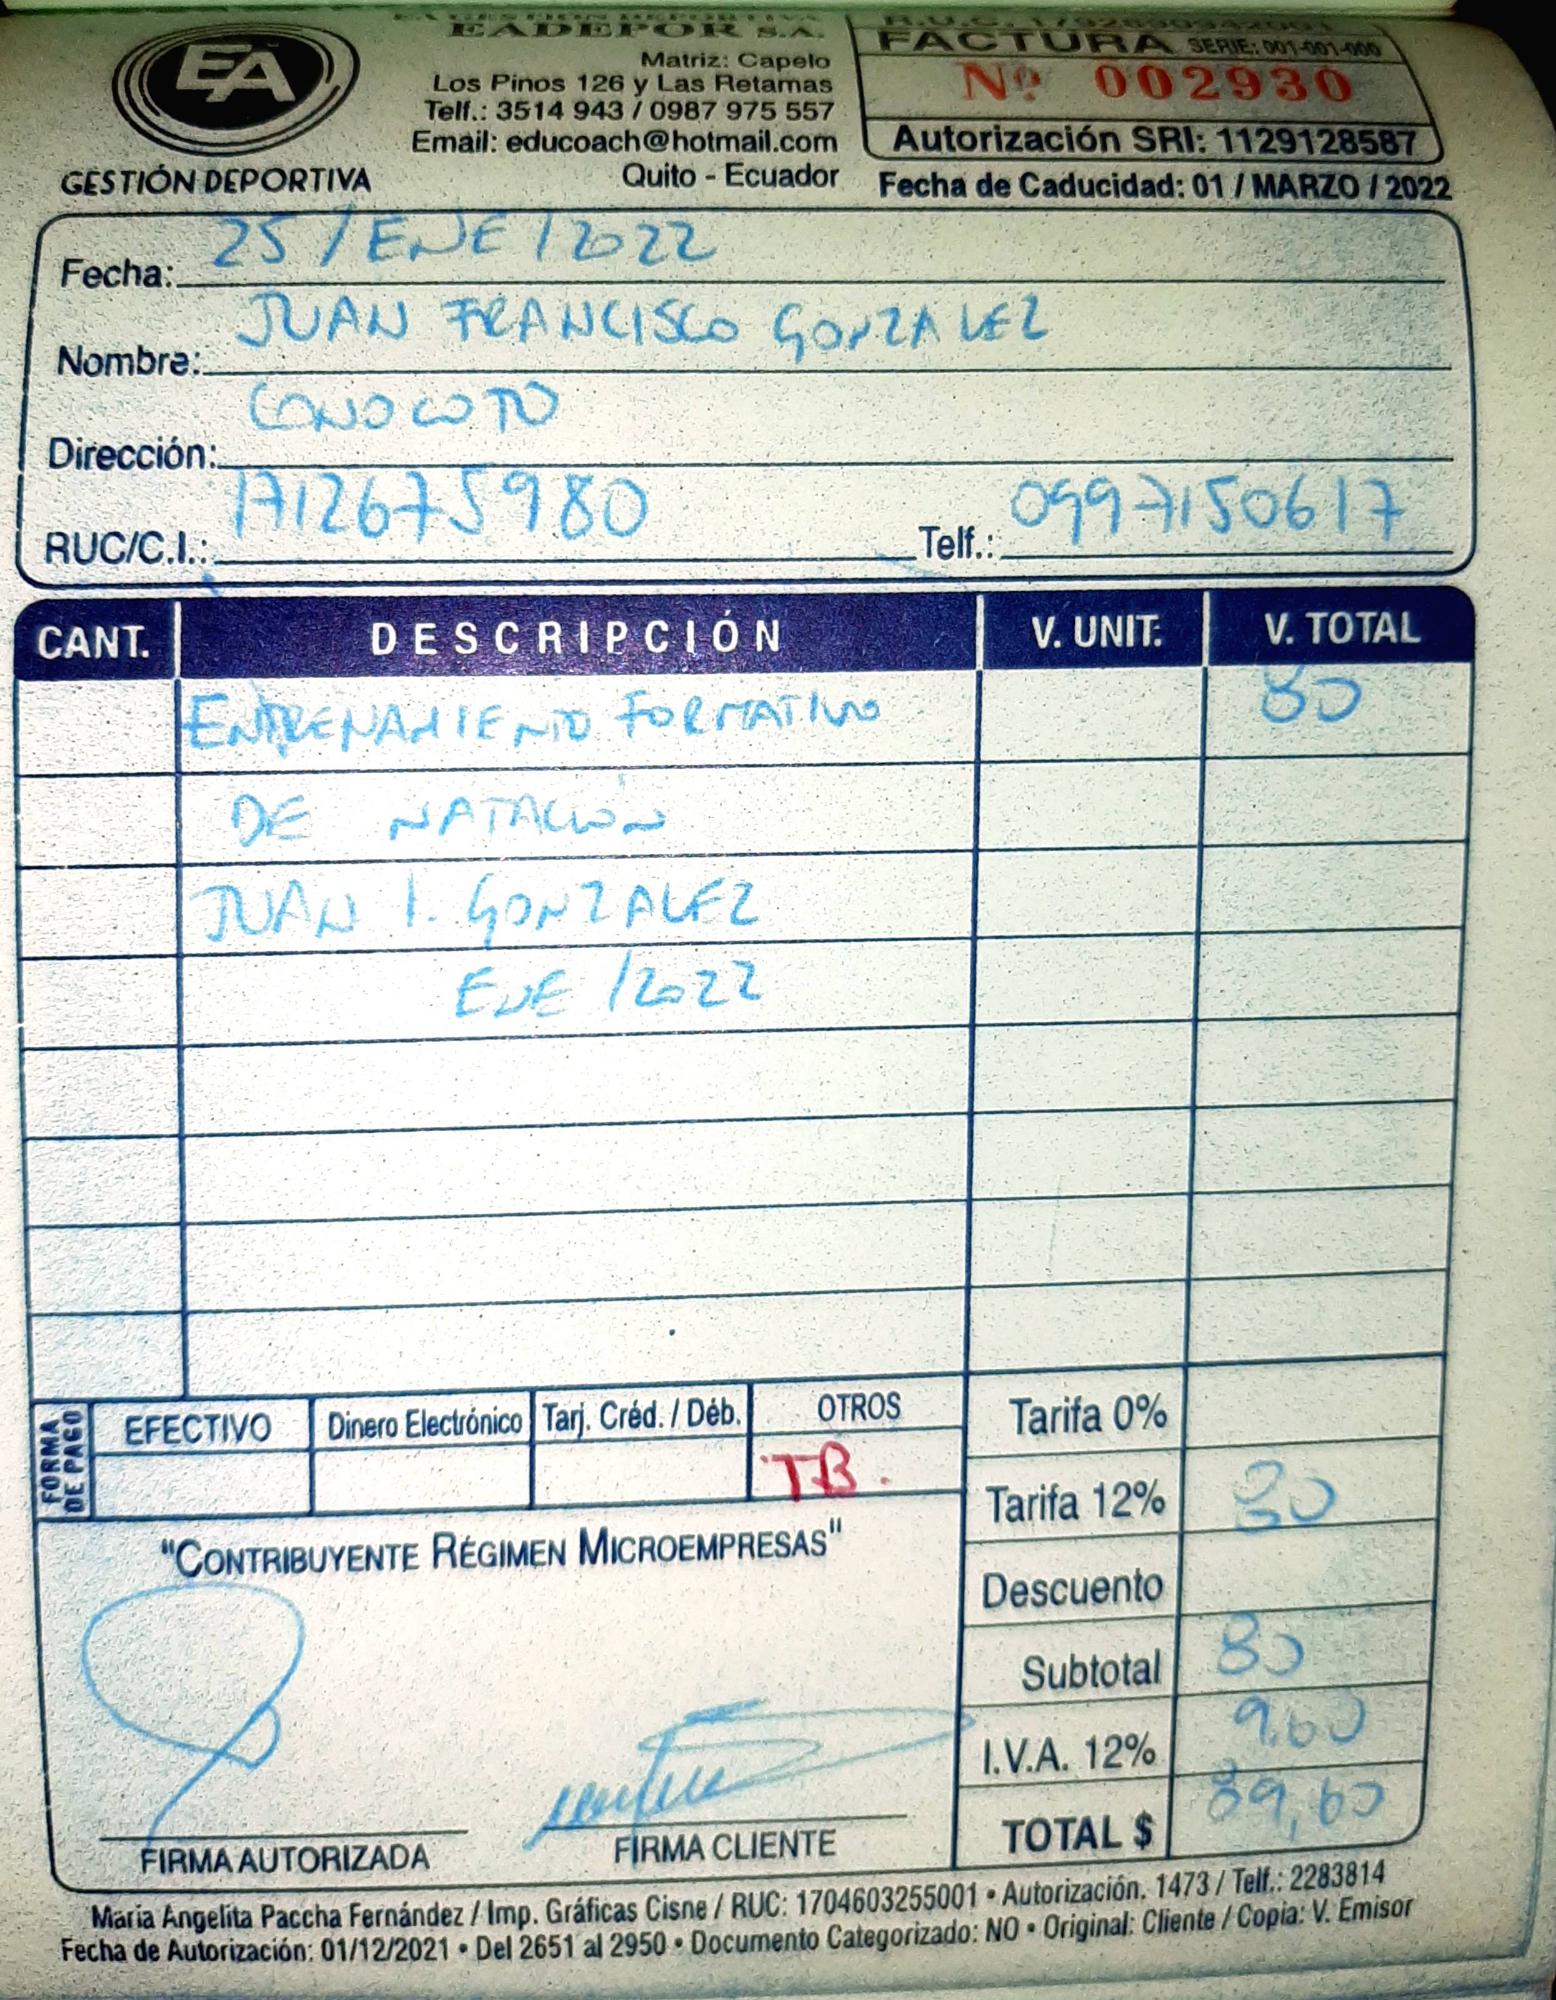 EA GESTIÓN DEPORTIVA
EADEPOR S.A.
Matriz: Capelo
Los Pinos 126 y Las Retamas
Telf.: 3514 943 / 0987 975 557
Email: educoach@hotmail.com
Quito - Ecuador
EA
GESTIÓN DEPORTIVA
R.U.C.
FACTURA SERIE: 001-001-000
Nº 002930
Autorización SRI: 1129128587
Fecha de Caducidad: 01 / MARZO / 2022
Fecha: 25 / ENE / 2022
Nombre: JUAN FRANCISCO GONZALEZ
Dirección: CONOCOTO
RUC/C.I.: 1712675980 Telf.: 0997150617
CANT. DESCRIPCIÓN V. UNIT. V. TOTAL
ENTRENAMIENTO FORMATIVO 80
DE NATACIÓN
JUAN I. GONZALEZ
ENE /2022
FORMA DE PAGO
EFECTIVO Dinero Electrónico Tarj. Créd. / Déb. OTROS
TB.
Tarifa 0%
Tarifa 12% 80
Descuento
Subtotal 80
I.V.A. 12% 9.60
TOTAL $ 89,60
"CONTRIBUYENTE RÉGIMEN MICROEMPRESAS"
FIRMA AUTORIZADA FIRMA CLIENTE
Maria Angelita Paccha Fernández / Imp. Gráficas Cisne / RUC: 1704603255001 • Autorización. 1473 / Telf.: 2283814
Fecha de Autorización: 01/12/2021 • Del 2651 al 2950 • Documento Categorizado: NO • Original: Cliente / Copia: V. Emisor